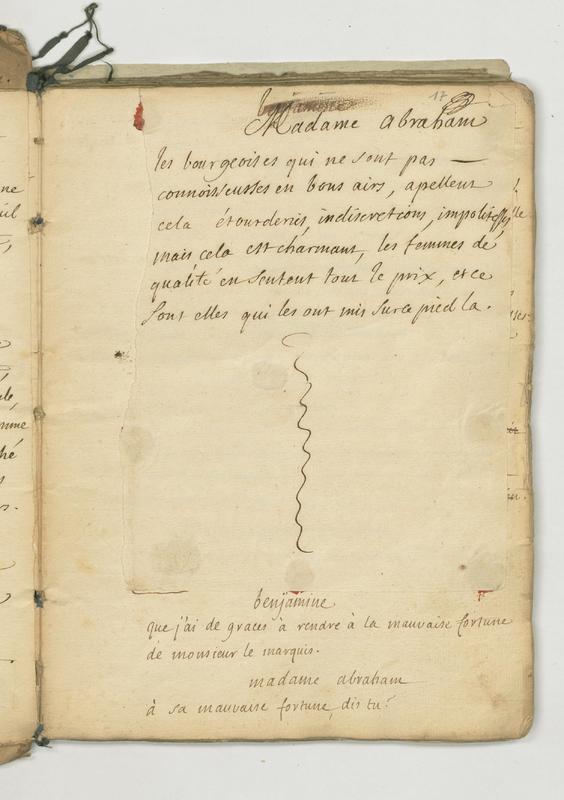 17
benjamine
Madame abraham
les bourgeoises qui ne sont pas —
connoisseusses en bons airs, apellent
cela étourderies, indiscretions, impolitesses
mais cela est charmant, les femmes de
qualité en sentent tout le prix, et ce
sont elles qui les ont mis sur ce pied la.
benjamine
que j'ai de graces à rendre à la mauvaise fortune
de monsieur le marquis.
madame abraham
à sa mauvaise fortune, dis tu?